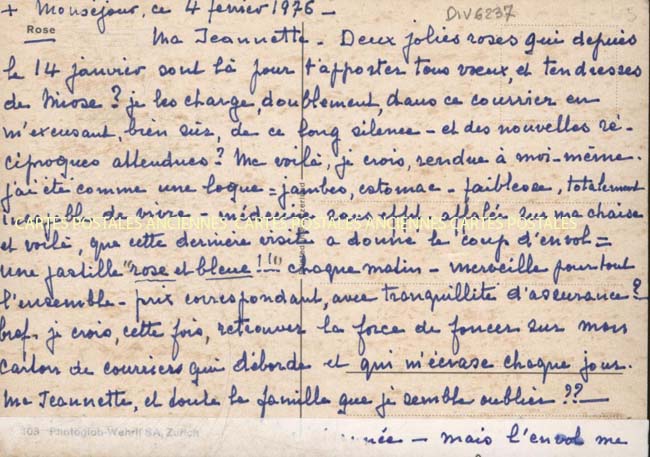 + Monséjour, ce 4 février 1976 –
DIV6237
Rose
Ma Jeannette – Deux jolies roses qui depuis
le 14 janvier sont là pour t'apporter tous vœux, et tendresses
de Miose ? je les charge, doublement, dans ce courrier en
m'excusant, bien sûr, de ce long silence – et des nouvelles ré-
ciproques attendues ? Me voilà, je crois, rendue à moi-même.
j'ai été comme une loque = jambes, estomac – faiblesse, totalement
de vivre – sur ma chaise
CARTES POSTALES ANCIENNES CARTES POSTALES ANCIENNES CARTES POSTALES ANCIENNES
et voilà, que cette dernière visite a donné le "coup d'envol =
une pastille "rose et bleue !!" chaque matin – merveille pour tout
l'ensemble – prix correspondant, avec tranquillité d'assurance ?
bref. je crois, cette fois, retrouver la force de foncer sur mon
carton de courriers qui déborde et qui m'écrase chaque jour.
Ma Jeannette, et toute la famille que je semble oublier ?? –
309 Photoglob-Wehrli SA, Zürich
– mais l'envol me